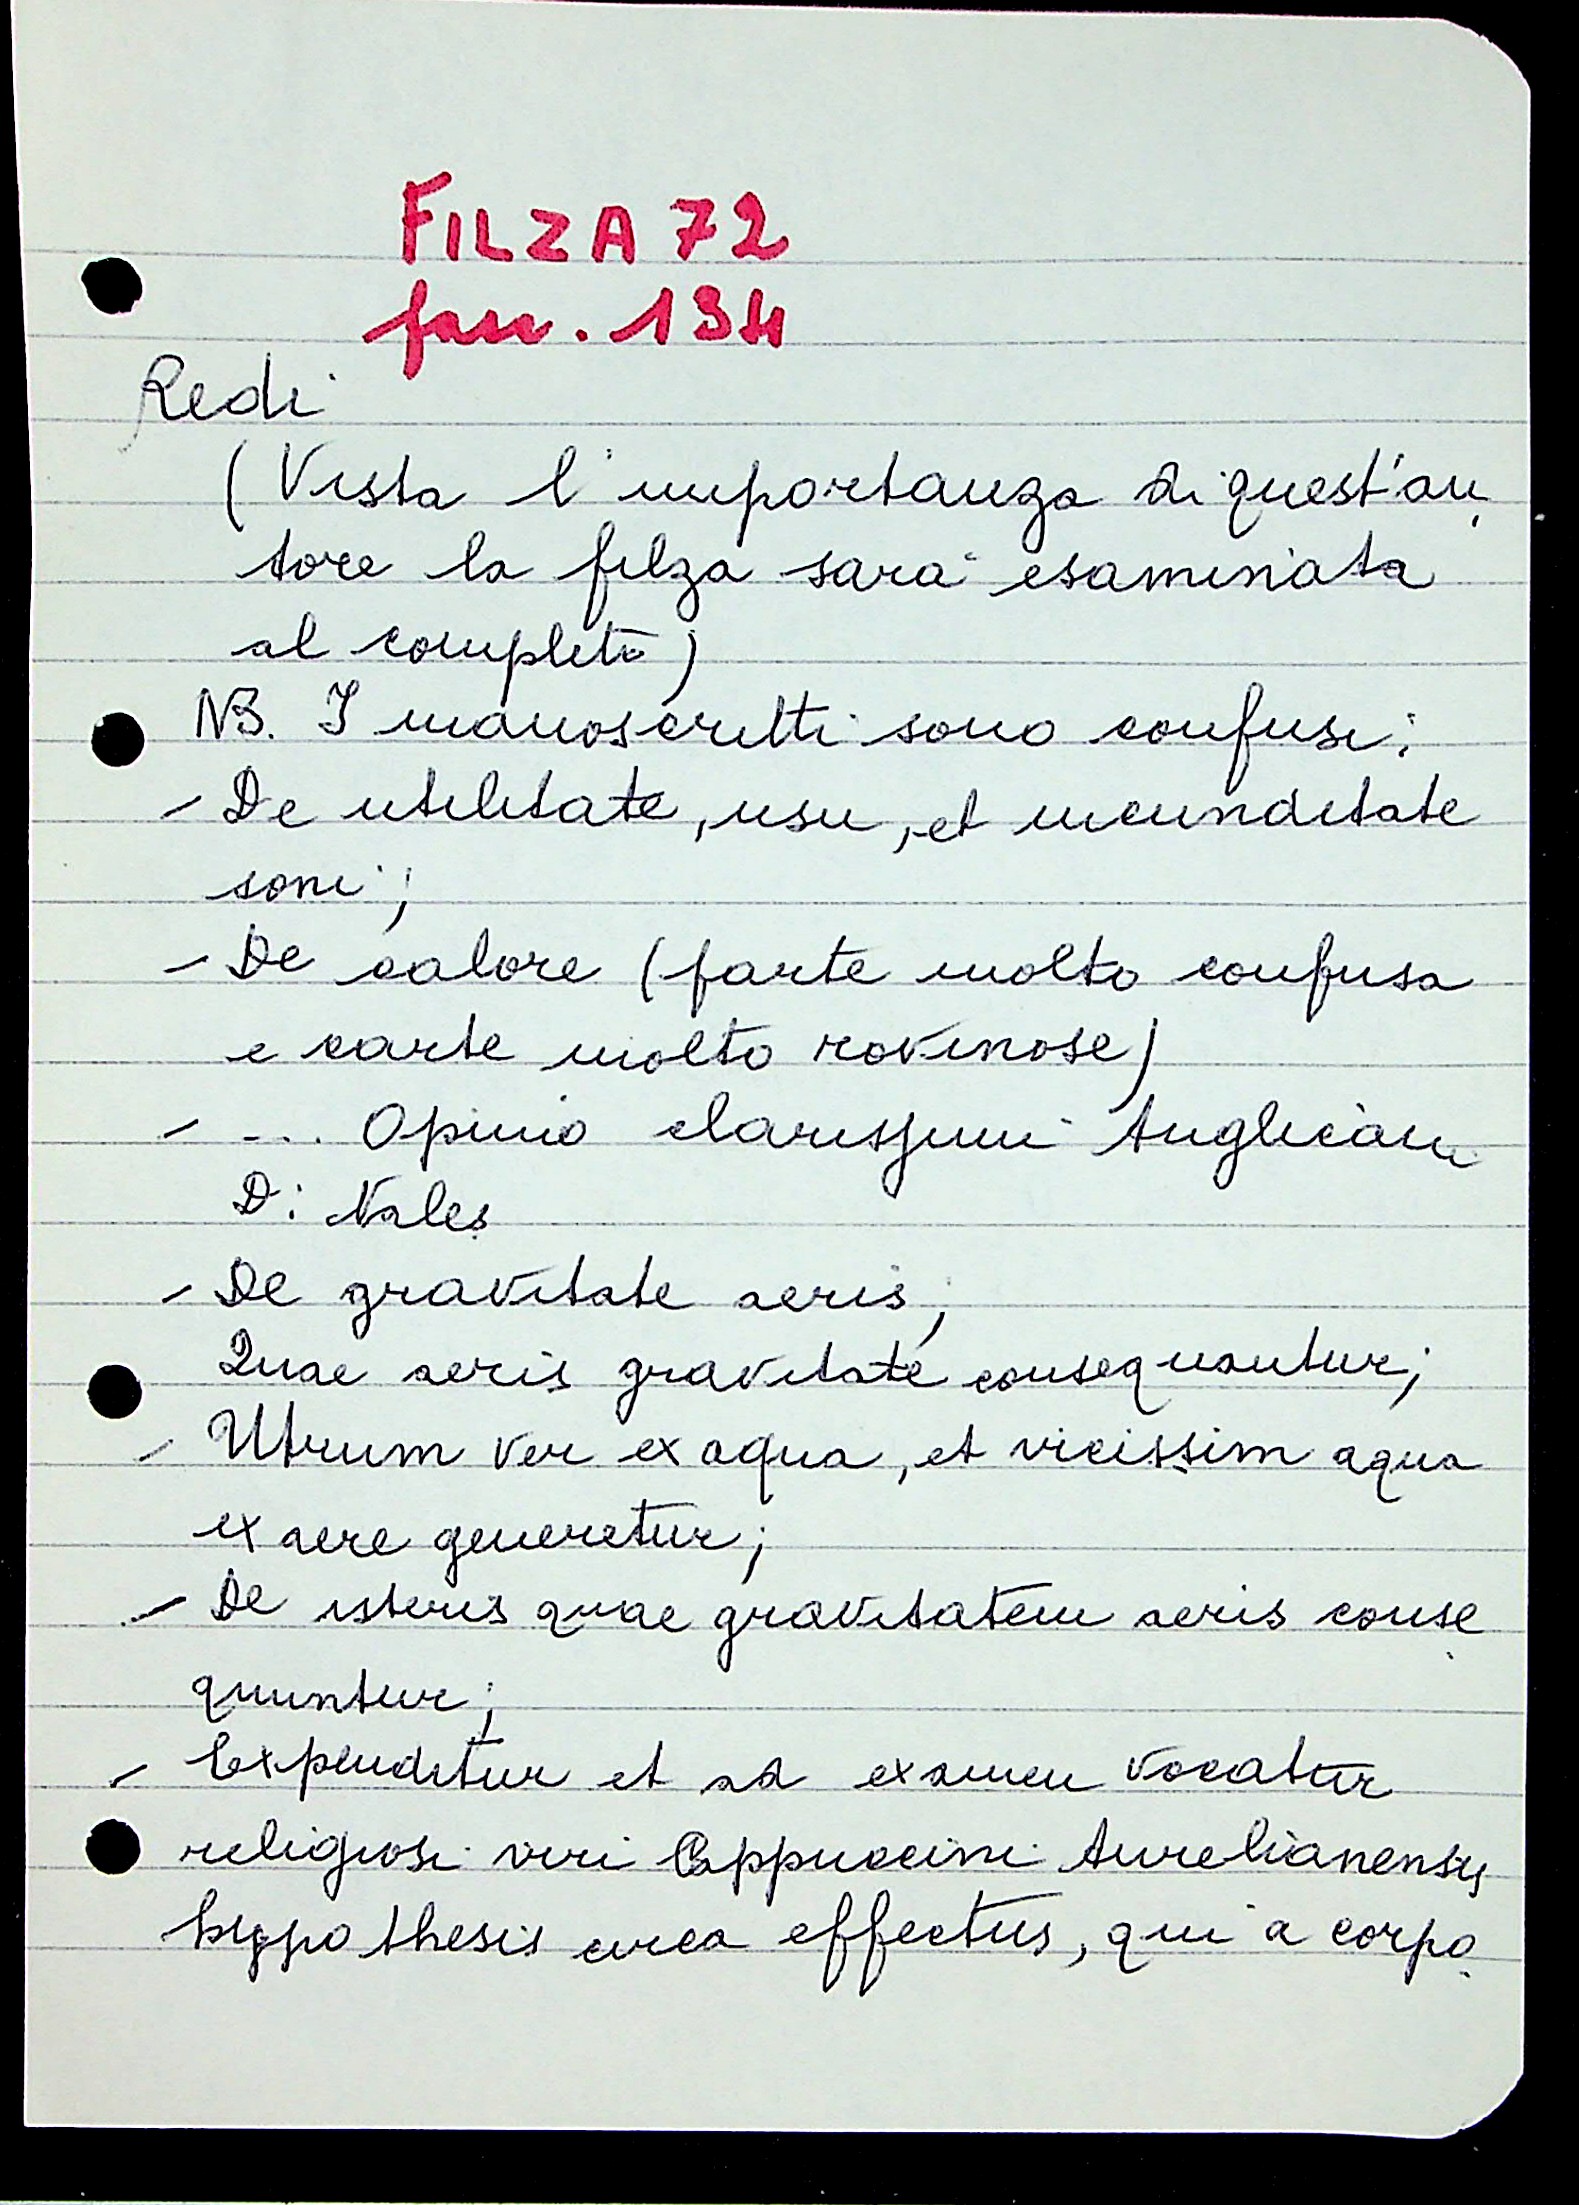 FILZA 72
fasc. 134
Redi
(Vista l'importanza di quest'au
tore la filza sarà esaminata
al completo)
NB. I manoscritti sono confusi:
- De utilitate, usu, et iucunditate
soni;
- De calore (parte molto confusa
e carte molto rovinose)
- ... Opinio clarissimi Anglicani
D: Nales
- De gravitate aeris,
Quae aeris gravitate consequantur;
- Utrum ver ex aqua, et vicissim aqua
ex aere generetur;
- De isteris quae gravitatem aeris conse
quuntur;
- Expenditur et ad examen vocatur
religiosi viri Cappuccini Aurelianensis
hyppothesis circa effectus, qui a corpo